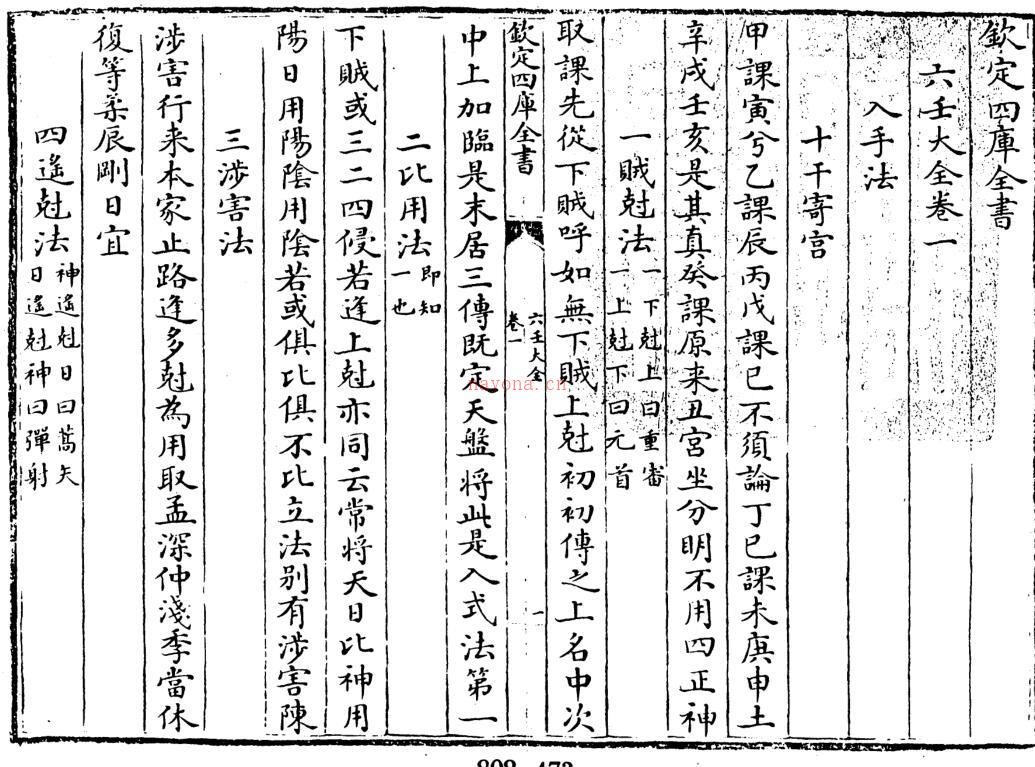 欽定四庫全書
六壬大全卷一
入手法
十干寄宮
甲課寅兮乙課辰丙戊課巳不須論丁巳課未庚申土
辛戌壬亥是其真癸課原来丑宮坐分明不用四正神
一賊尅法一下尅上曰重審
一上尅下曰元首
取課先從下賊呼如無下賊上尅初初傳之上名中次
欽定四庫全書
六壬大全
卷一
一
中上加臨是末居三傳既定天盤將此是入式法第一
二比用法即知
一也
下賊或三二四侵若逢上尅亦同云常將天日比神用
陽日用陽陰用陰若或俱比俱不比立法别有涉害陳
三涉害法
涉害行来本家止路逢多尅為用取孟深仲淺季當休
復等柔辰剛日宜
四遙尅法神遙尅日曰蒿矢
日遙尅神曰彈射
nayona.cn
808-473